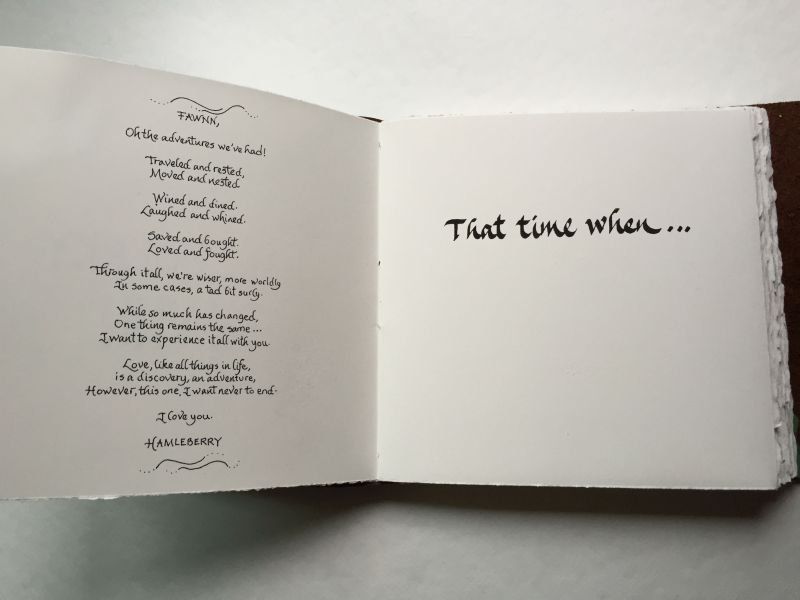 FAWNN,
Oh the adventures we've had!
Traveled and rested,
Moved and nested
Wined and dined.
Laughed and whined.
Saved and bought.
Loved and fought.
Through it all, we're wiser, more worldly
In some cases, a tad bit surly.
While so much has changed,
One thing remains the same...
I want to experience it all with you
Love, like all things in life,
is a discovery, an adventure,
However, this one, I want never to end.
I love you.
HAMLEBERRY
That time when...